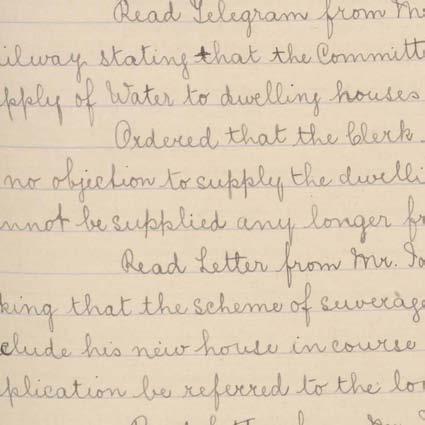 Read Telegram from Mr
ilway stating that the Committe
pply of Water to dwelling houses
Ordered that the Clerk
no objection to supply the dwelli
nnot be supplied any longer fr
Read Letter from Mr.
king that the scheme of sewerage
clude his new house in course
plication be referred to the loc